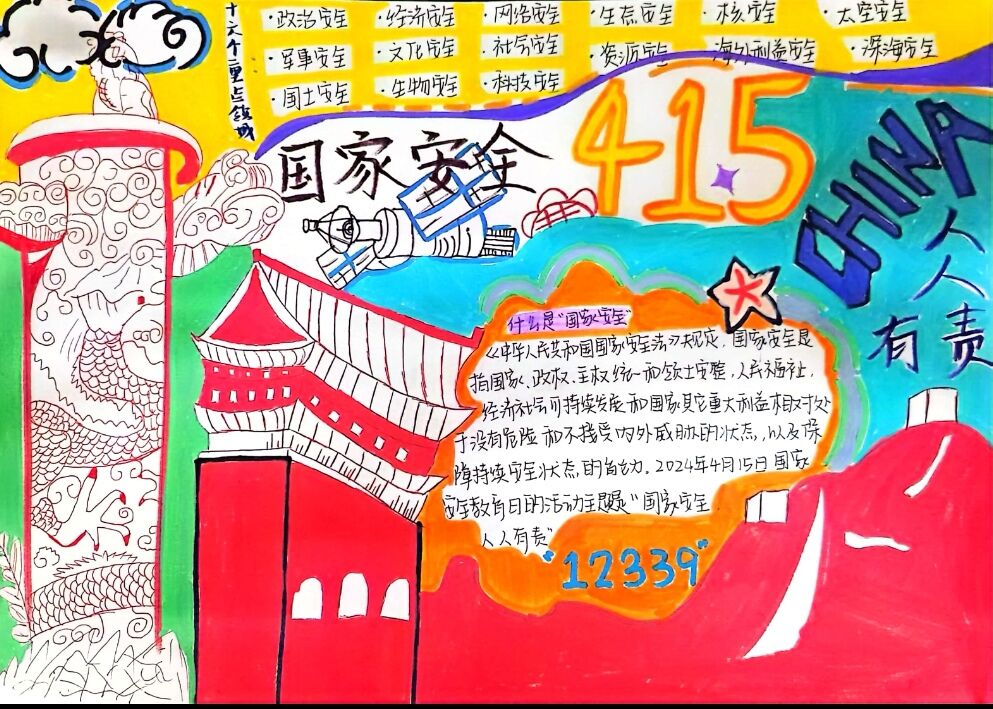 十六个重点领域
·政治安全 ·经济安全 ·网络安全 ·生态安全 ·核安全 ·太空安全
·军事安全 ·文化安全 ·社会安全 ·资源安全 ·海外利益安全 ·深海安全
·国土安全 ·生物安全 ·科技安全
国家安全 4.15
CHINA
人人有责
什么是“国家安全”
《中华人民共和国国家安全法》规定,国家安全是
指国家、政权、主权统一和领土完整,人民福祉,
经济社会可持续发展和国家其它重大利益相对处
于没有危险和不接受内外威胁的状态,以及保
障持续安全状态的自动。2024年4月15日国家
安全教育日的活动主题是“国家安全
人人有责”
“12339”